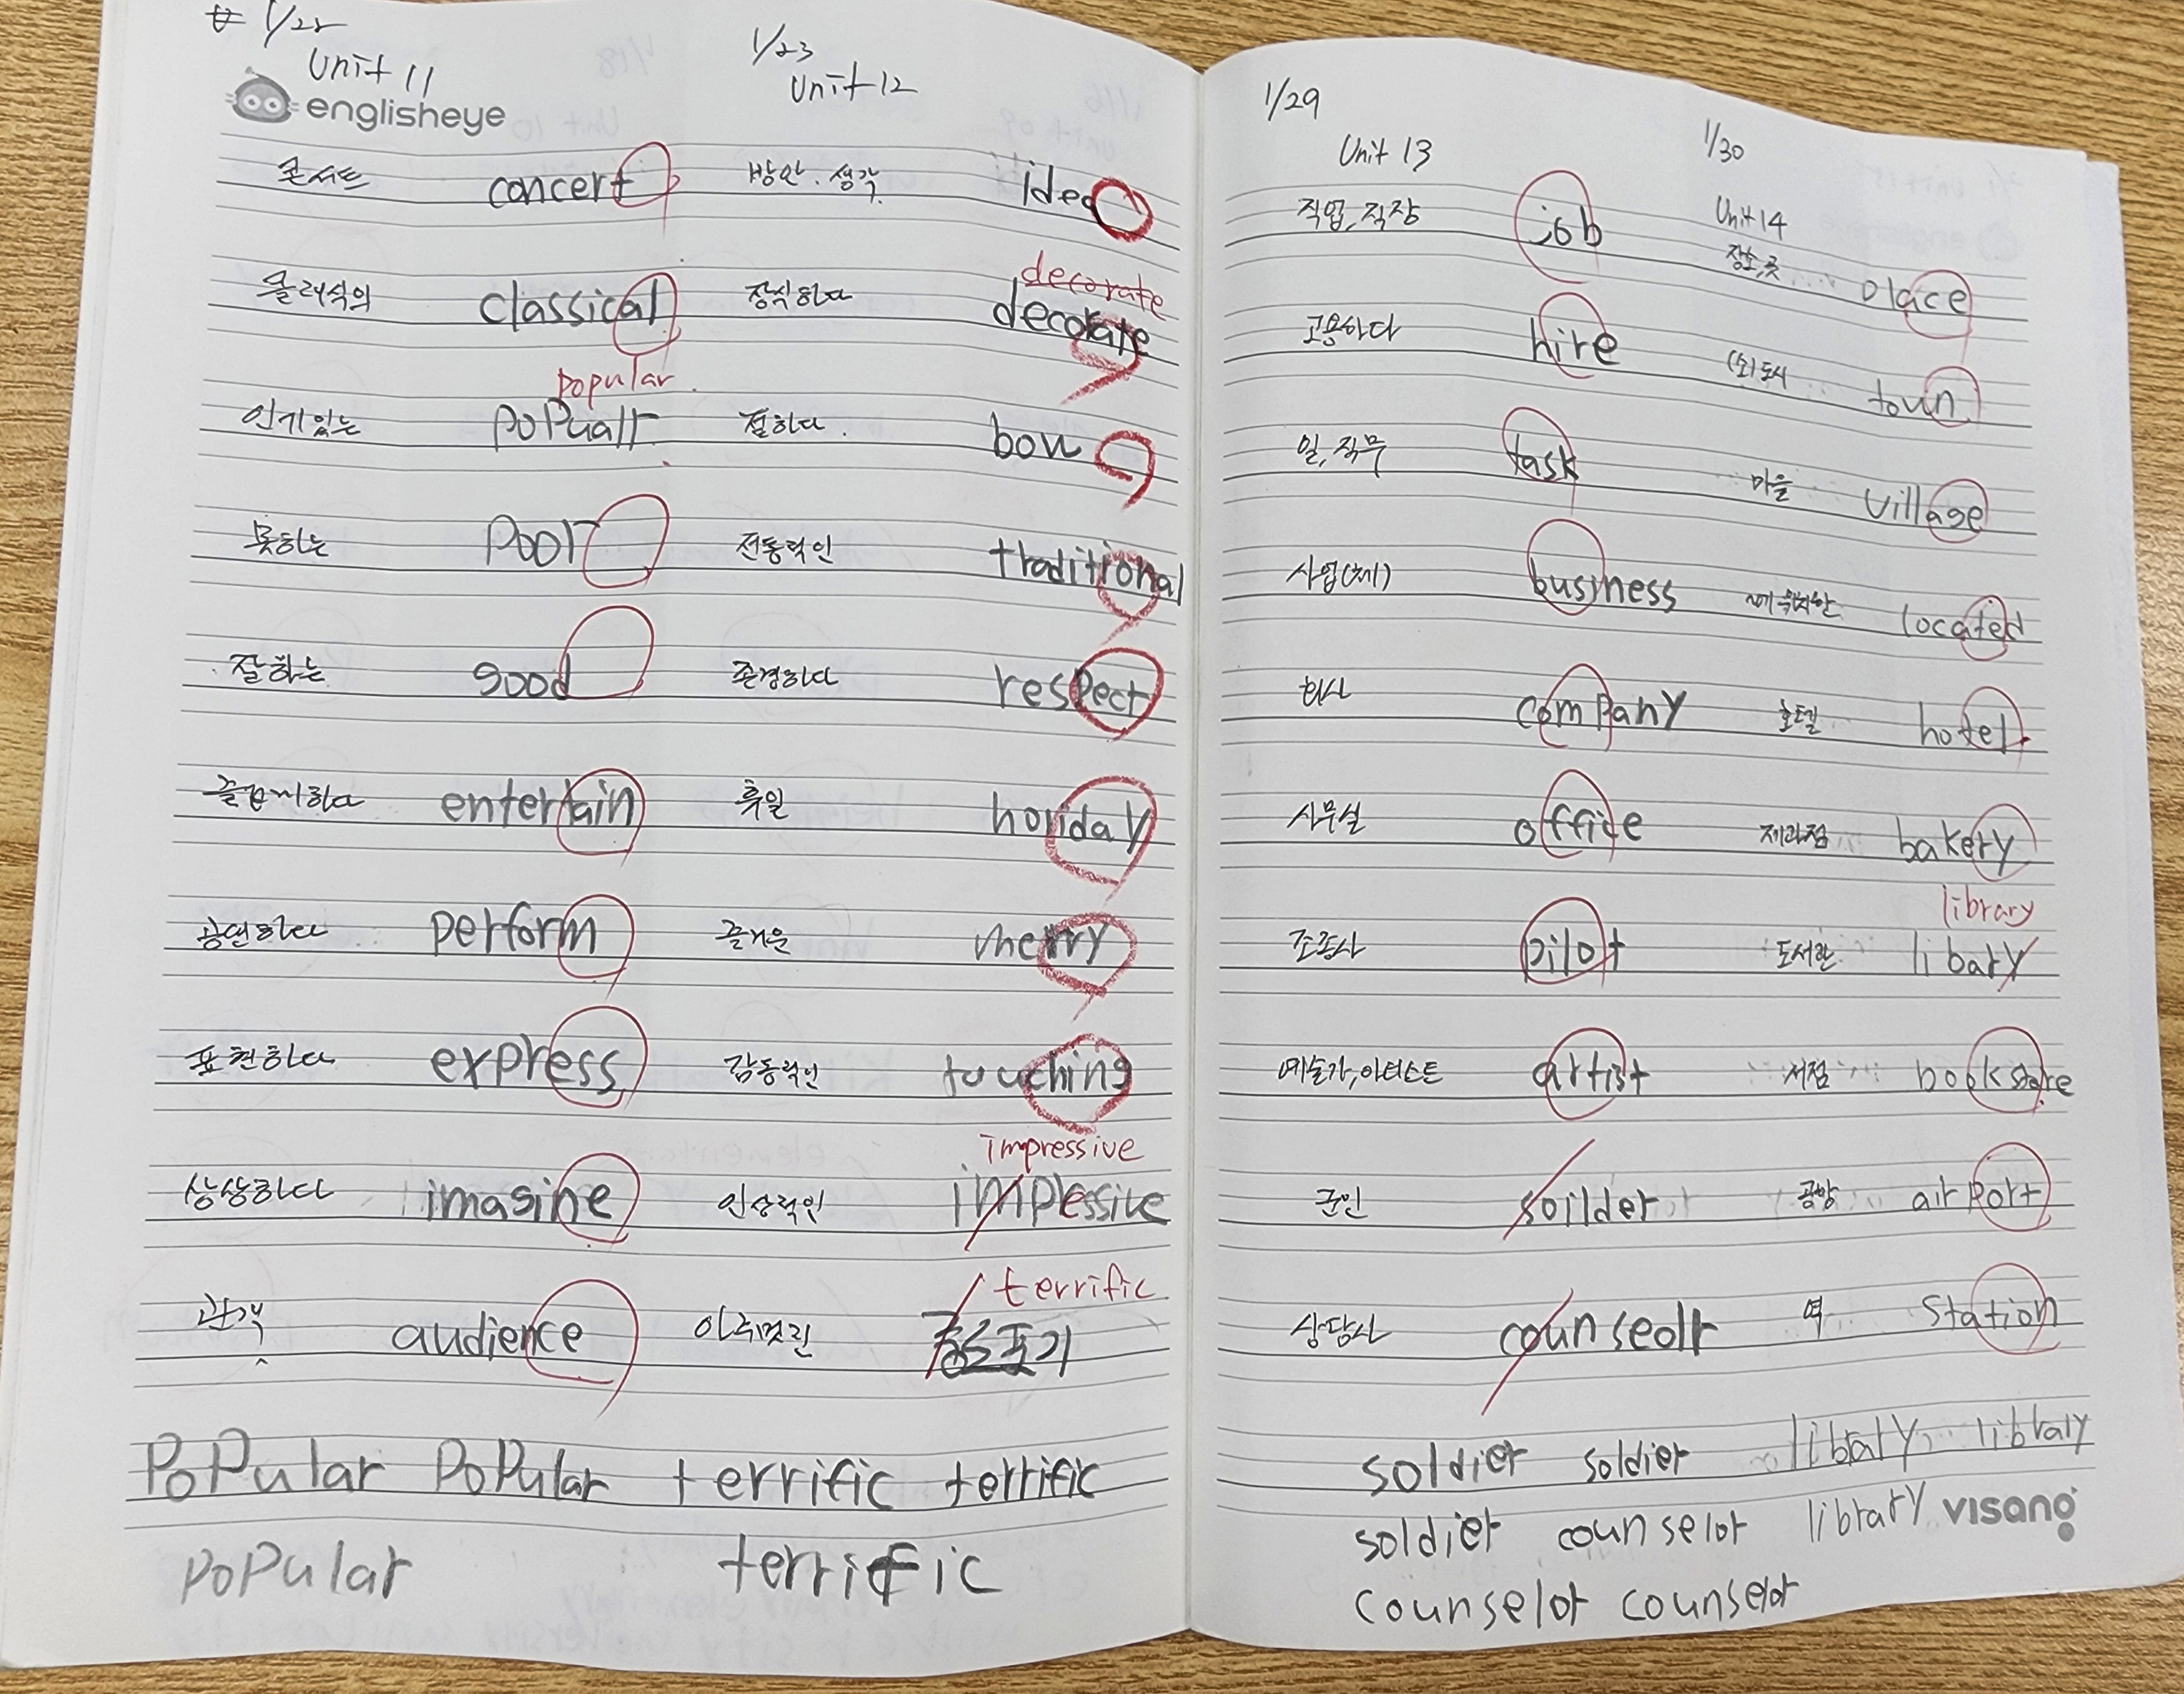 1/22
Unit 11
englisheye
콘서트 concert
클래식의 classical
popular
인기있는 poPualr
못하는 Poor
잘하는 good
즐겁게하다 entertain
공연하다 perform
표현하다 express
상상하다 imagine
관객 audience
PoPular PoPular
PoPular
1/23
Unit 12
방안. 생각 idea
decorate
장식하다 decorate
절하다. bow
전통적인 traditional
존경하다 respect
휴일 holiday
즐거운 merry
감동적인 touching
impressive
인상적인 implessive
terrific
아주멋진 포기
terrific terrific
terrific
1/29
Unit 13
직업, 직장 job
고용하다 hire
일, 직무 task
사업(체) business
회사 company
사무실 office
조종사 pilot
예술가, 아티스트 artist
군인 soilder
상담사 counseolr
soldier soldier
soldier counselor
counselor counselor
1/30
Unit 14
장소, 곳 place
(소)도시 town
마을 village
~에 위치한 located
호텔 hotel
제과점 bakery
library
도서관 libary
서점 bookstore
공항 airport
역 station
library library
library
visang